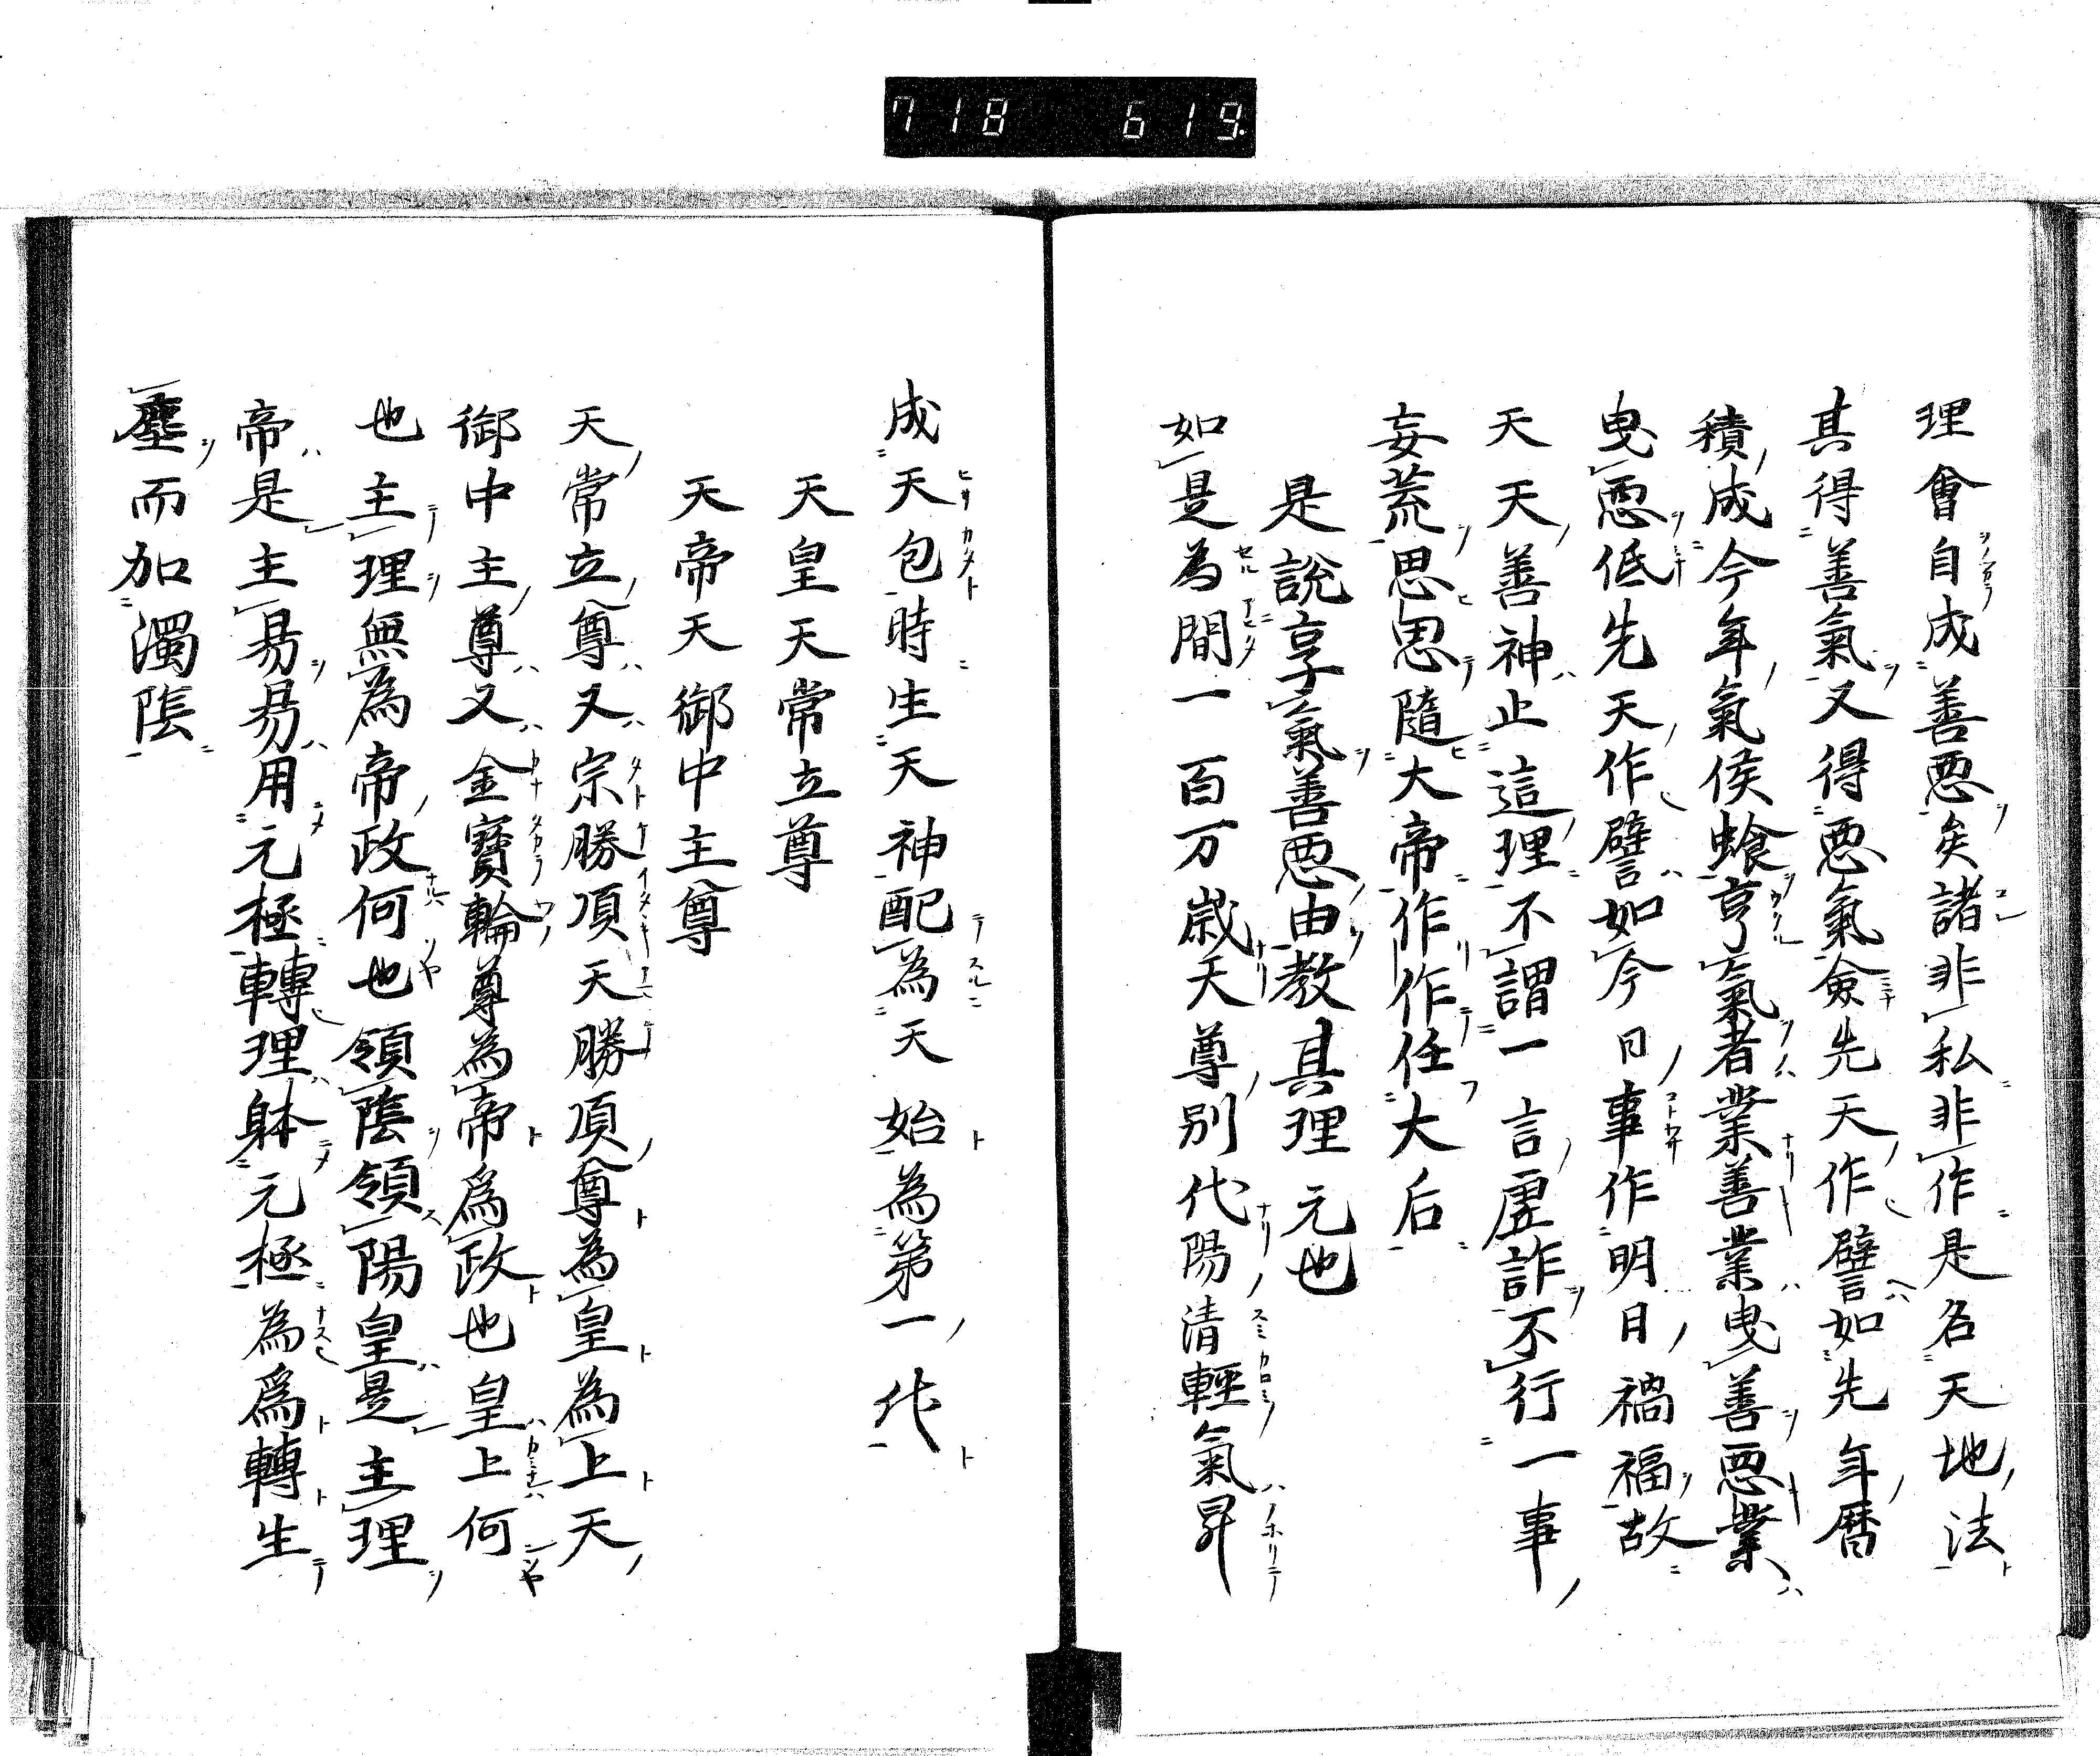 718 619.
理會自成善悪矣諸非私非作是名天地法
其得善氣又得悪氣僉先天作譬如先年暦
積成今年氣侯蝕亨氣者業善業曳善悪業
曳悪低先天作譬如今日事作明日禍福故
天天善神止這理不謂一言虚詐不行一事
妄荒思思隨大帝作作任大后
是說享氣善悪由教其理元也
如是為間一百万歳天尊別代陽清輕氣昇
成天包時生天神配為天始為第一代
天皇天常立尊
天帝天御中主尊
天常立尊又宗勝頂天勝頂尊為皇為上天
御中主尊又金寶輪尊為帝爲政也皇上何
也主理無為帝政何也領陰領陽皇是主理
帝是主易易用元極轉理躰元極為爲轉生
塵而加濁陰